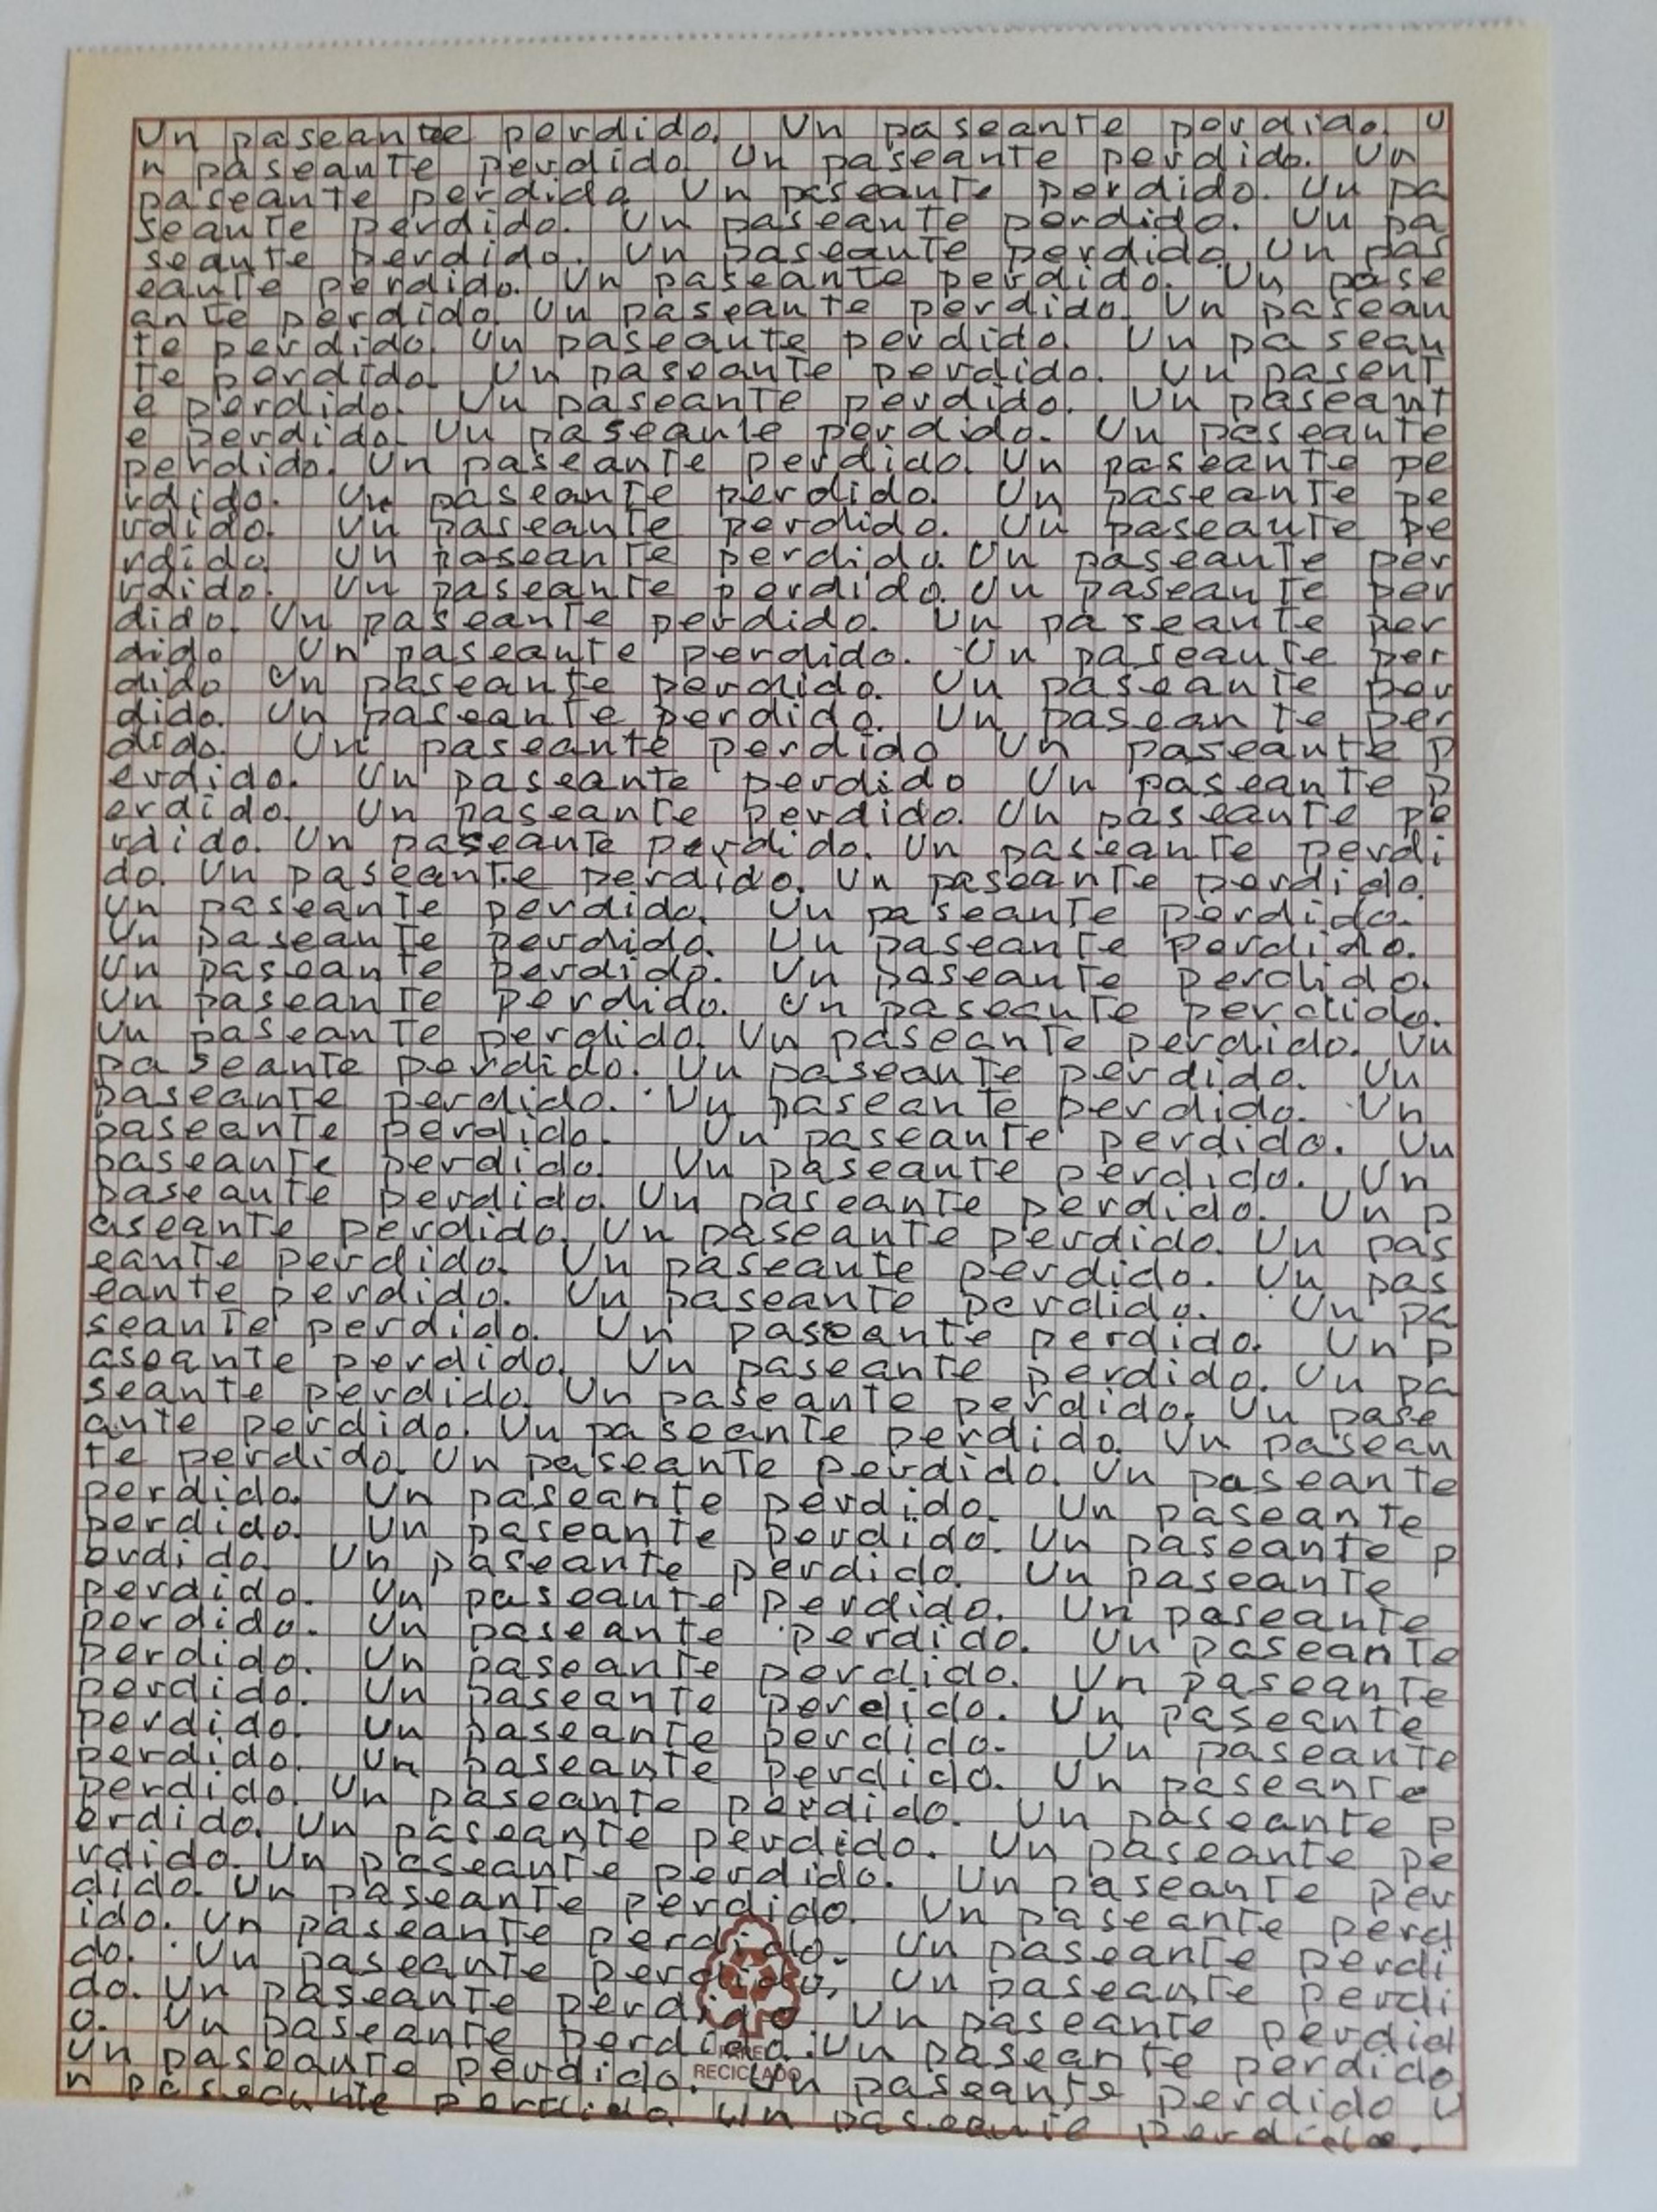 Un paseante perdido. Un paseante perdido. U
n paseante perdido. Un paseante perdido. Un
paseante perdido. Un paseante perdido. Un pa
seante perdido. Un paseante perdido. Un pa
seante perdido. Un paseante perdido. Un pas
eante perdido. Un paseante perdido. Un pase
ante perdido. Un paseante perdido. Un pasean
te perdido. Un paseante perdido. Un pasean
te perdido. Un paseante perdido. Un pasent
e perdido. Un paseante perdido. Un paseant
e perdido. Un paseante perdido. Un paseante
perdido. Un paseante perdido. Un paseante pe
rdido. Un paseante perdido. Un paseante pe
rdido. Un paseante perdido. Un paseante pe
rdido. Un paseante perdido. Un paseante per
rdido. Un paseante perdido. Un paseante per
dido. Un paseante perdido. Un paseante per
dido Un paseante perdido. Un paseante per
dido Un paseante perdido. Un paseante per
dido. Un paseante perdido. Un paseante per
dido. Un paseante perdido Un paseante p
erdido. Un paseante perdido Un paseante p
erdido. Un paseante perdido. Un paseante pe
rdido. Un paseante perdido. Un paseante perdi
do. Un paseante perdido. Un paseante perdido.
Un paseante perdido. Un paseante perdido.
Un paseante perdido. Un paseante perdido.
Un paseante perdido. Un paseante perdido.
Un paseante perdido. Un paseante perdido.
Un paseante perdido. Un paseante perdido. Un
paseante perdido. Un paseante perdido. Un
paseante perdido. Un paseante perdido. Un
paseante perdido. Un paseante perdido. Un
paseante perdido. Un paseante perdido. Un
paseante perdido. Un paseante perdido. Un p
aseante perdido. Un paseante perdido. Un pas
eante perdido. Un paseante perdido. Un pas
eante perdido. Un paseante perdido. Un pa
seante perdido. Un paseante perdido. Un p
aseante perdido. Un paseante perdido. Un pa
seante perdido. Un paseante perdido. Un pase
ante perdido. Un paseante perdido. Un pasean
te perdido. Un paseante perdido. Un paseante
perdido. Un paseante perdido. Un paseante
perdido. Un paseante perdido. Un paseante p
erdido. Un paseante perdido. Un paseante
perdido. Un paseante perdido. Un paseante
perdido. Un paseante perdido. Un paseante
perdido. Un paseante perdido. Un paseante
perdido. Un paseante perdido. Un paseante
perdido. Un paseante perdido. Un paseante
perdido. Un paseante perdido. Un paseante
perdido. Un paseante perdido. Un paseante p
erdido. Un paseante perdido. Un paseante pe
rdido. Un paseante perdido. Un paseante per
dido. Un paseante perdido. Un paseante perd
ido. Un paseante perdido. Un paseante perdi
do. Un paseante perdido, Un paseante perdi
do. Un paseante perdido Un paseante perdid
o. Un paseante perdido. Un paseante perdido
Un paseante perdido. Un paseante perdido U
n paseante perdido Un paseante perdido.
RECICLADO